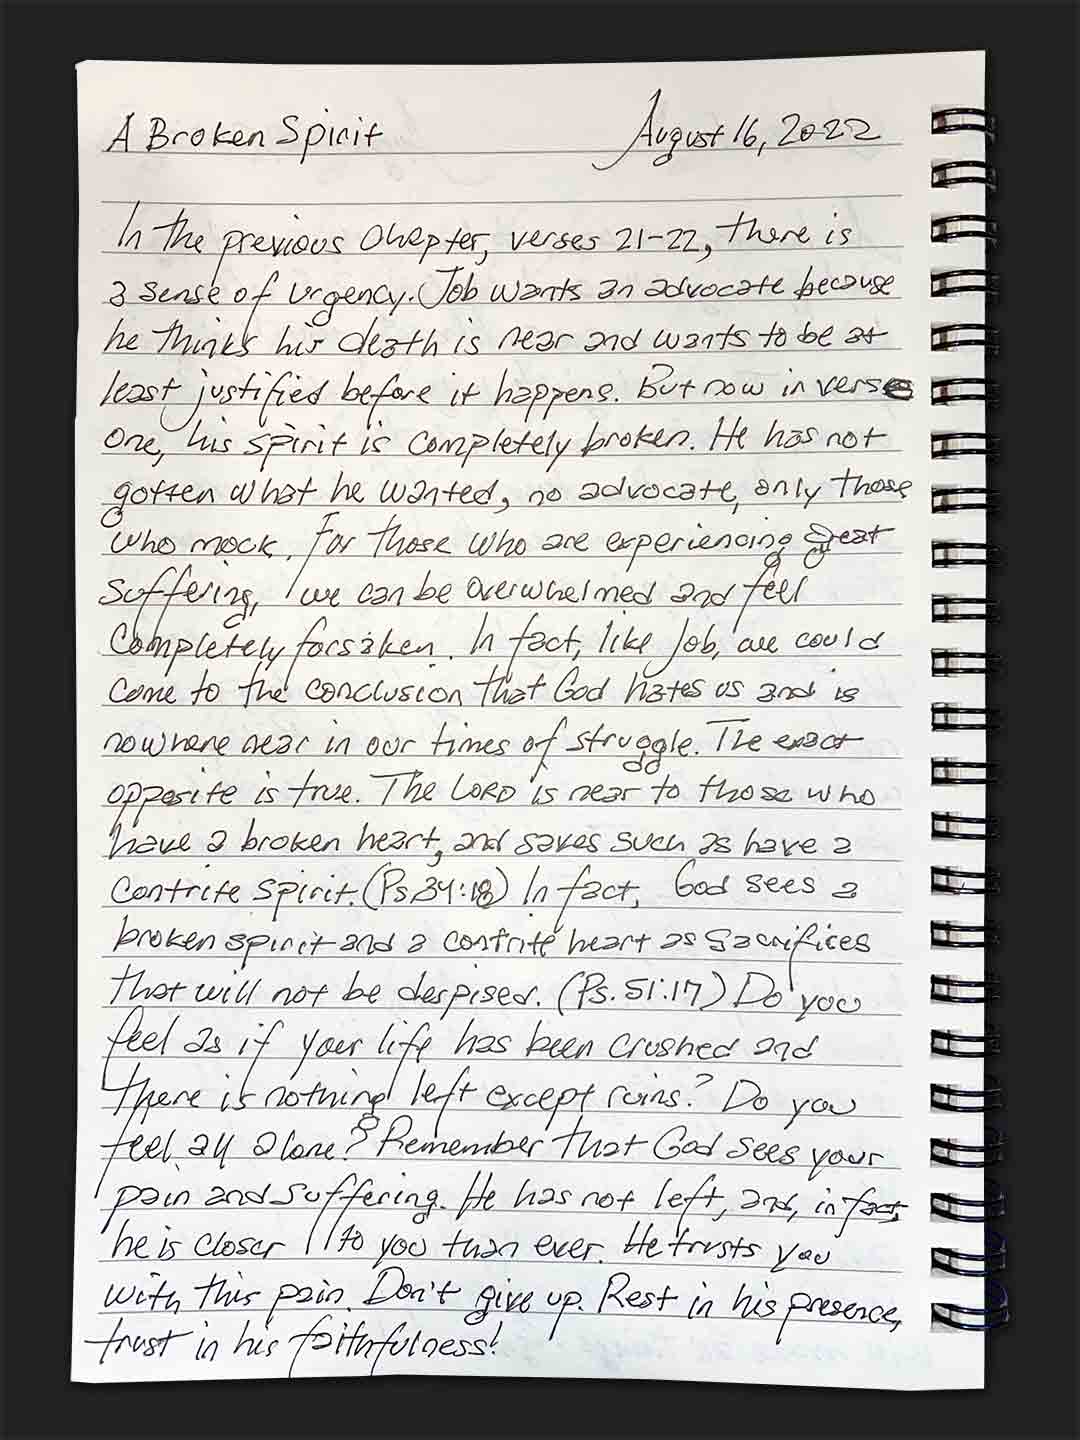 A Broken Spirit August 16, 2022
In the previous chapter, verses 21-22, there is
a sense of urgency. Job wants an advocate because
he thinks his death is near and wants to be at
least justified before it happens. But now in verse
one, his spirit is completely broken. He has not
gotten what he wanted, no advocate, only those
who mock. For those who are experiencing great
suffering, we can be overwhelmed and feel
completely forsaken. In fact, like Job, we could
come to the conclusion that God hates us and is
nowhere near in our times of struggle. The exact
opposite is true. The LORD is near to those who
have a broken heart, and saves such as have a
contrite spirit. (Ps. 34:18) In fact, God sees a
broken spirit and a contrite heart as sacrifices
that will not be despised. (Ps. 51:17) Do you
feel as if your life has been crushed and
there is nothing left except ruins? Do you
feel all alone? Remember that God sees your
pain and suffering. He has not left, and, in fact,
he is closer to you than ever. He trusts you
with this pain. Don't give up. Rest in his presence,
trust in his faithfulness!